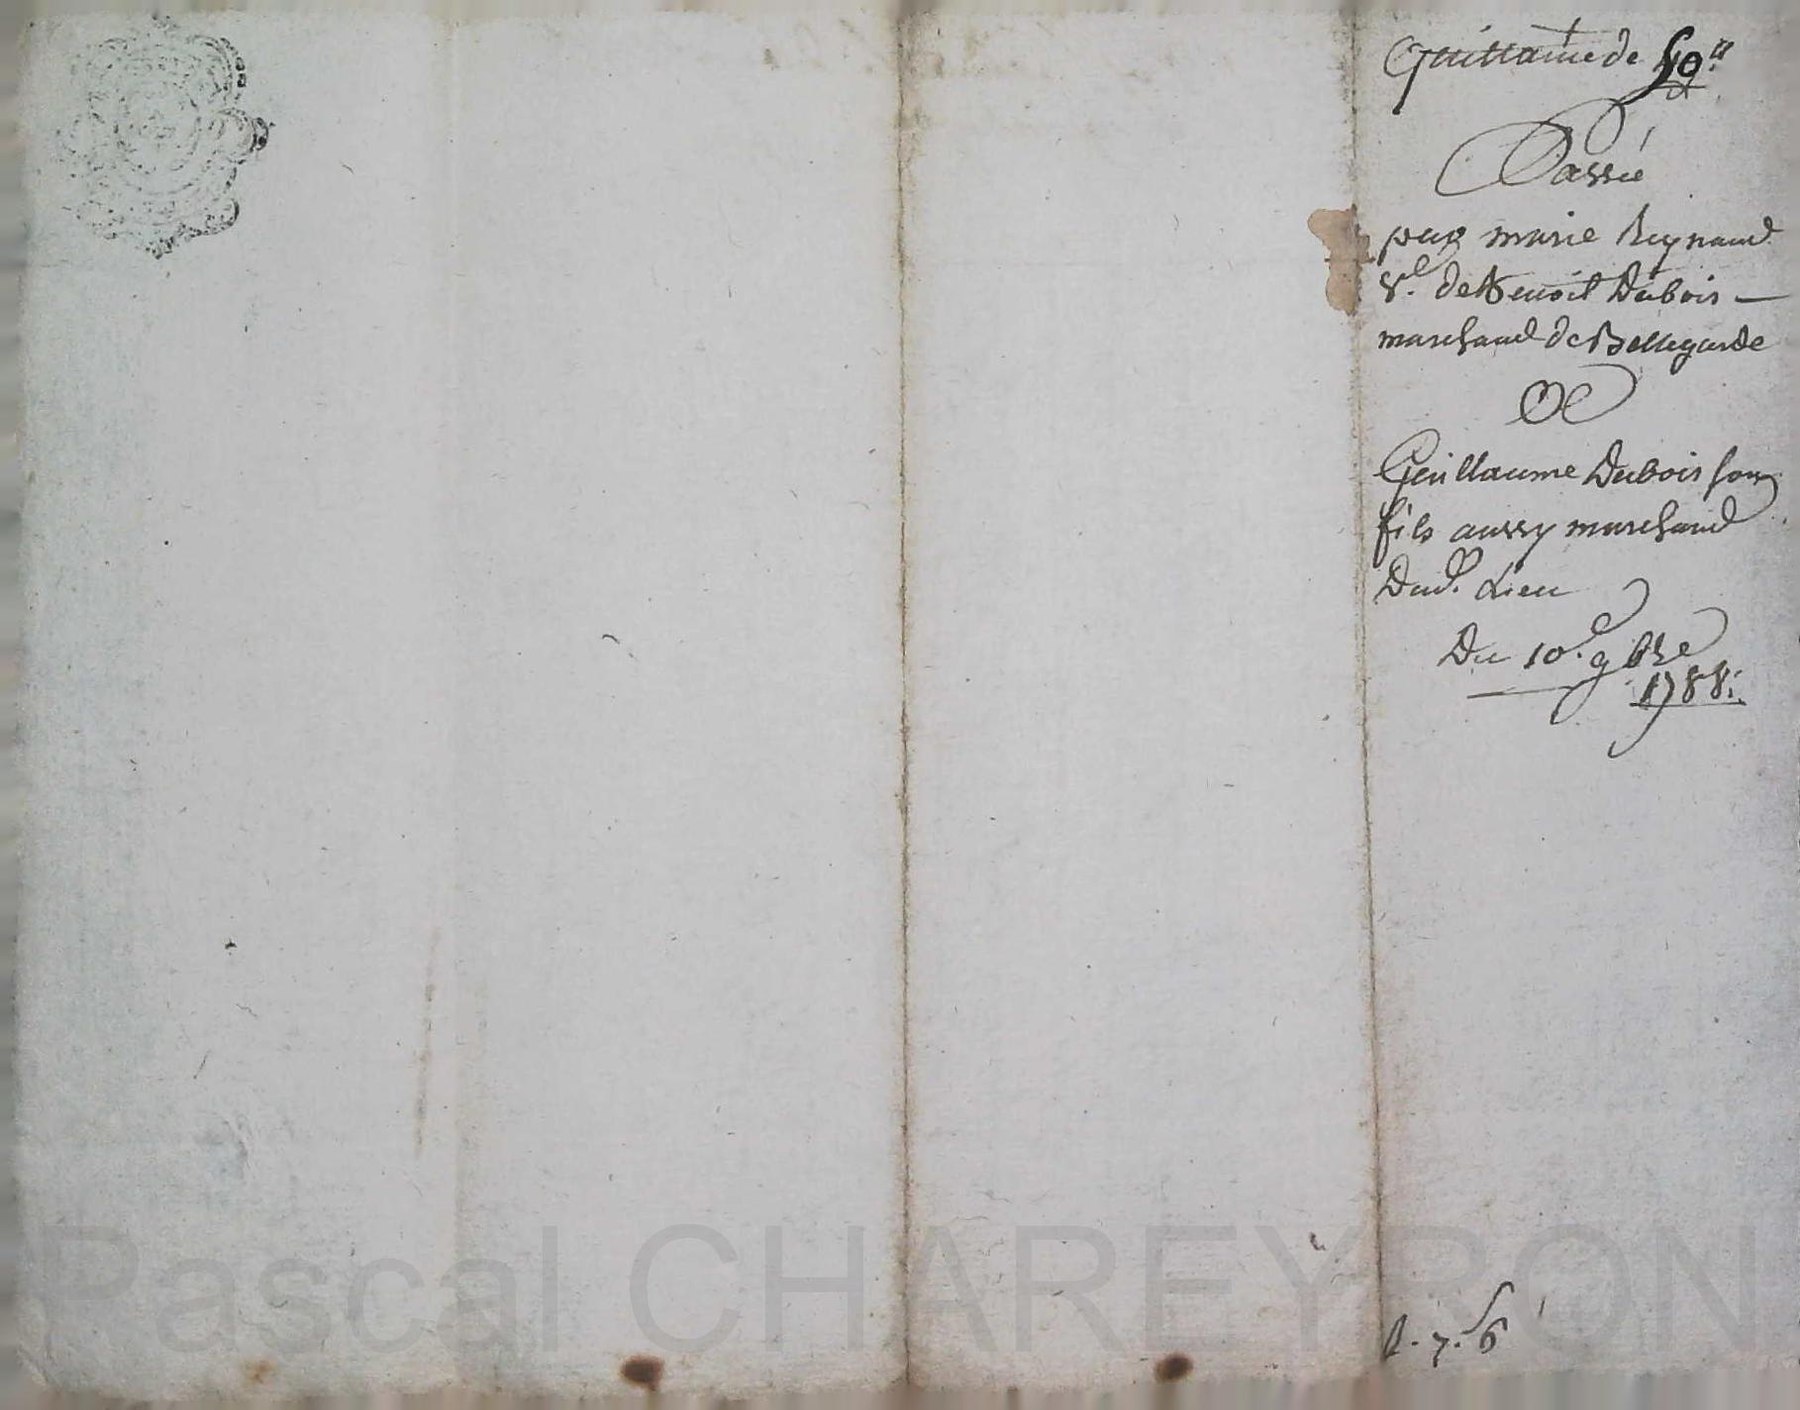 Quittance de 40"
Passée
par marie Reynaud
V.e de Benoit Dubois —
marchand de Bellegarde
Et
Guillaume Dubois son
fils aussy marchand
Dud. Lieu
Du 10.e 9bre
1788.
Pascal CHAREYRON